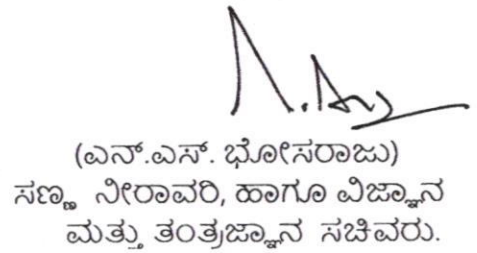 (ಎನ್.ಎಸ್. ಭೋಸರಾಜು)
ಸಣ್ಣ ನೀರಾವರಿ, ಹಾಗೂ ವಿಜ್ಞಾನ
ಮತ್ತು ತಂತ್ರಜ್ಞಾನ ಸಚಿವರು.